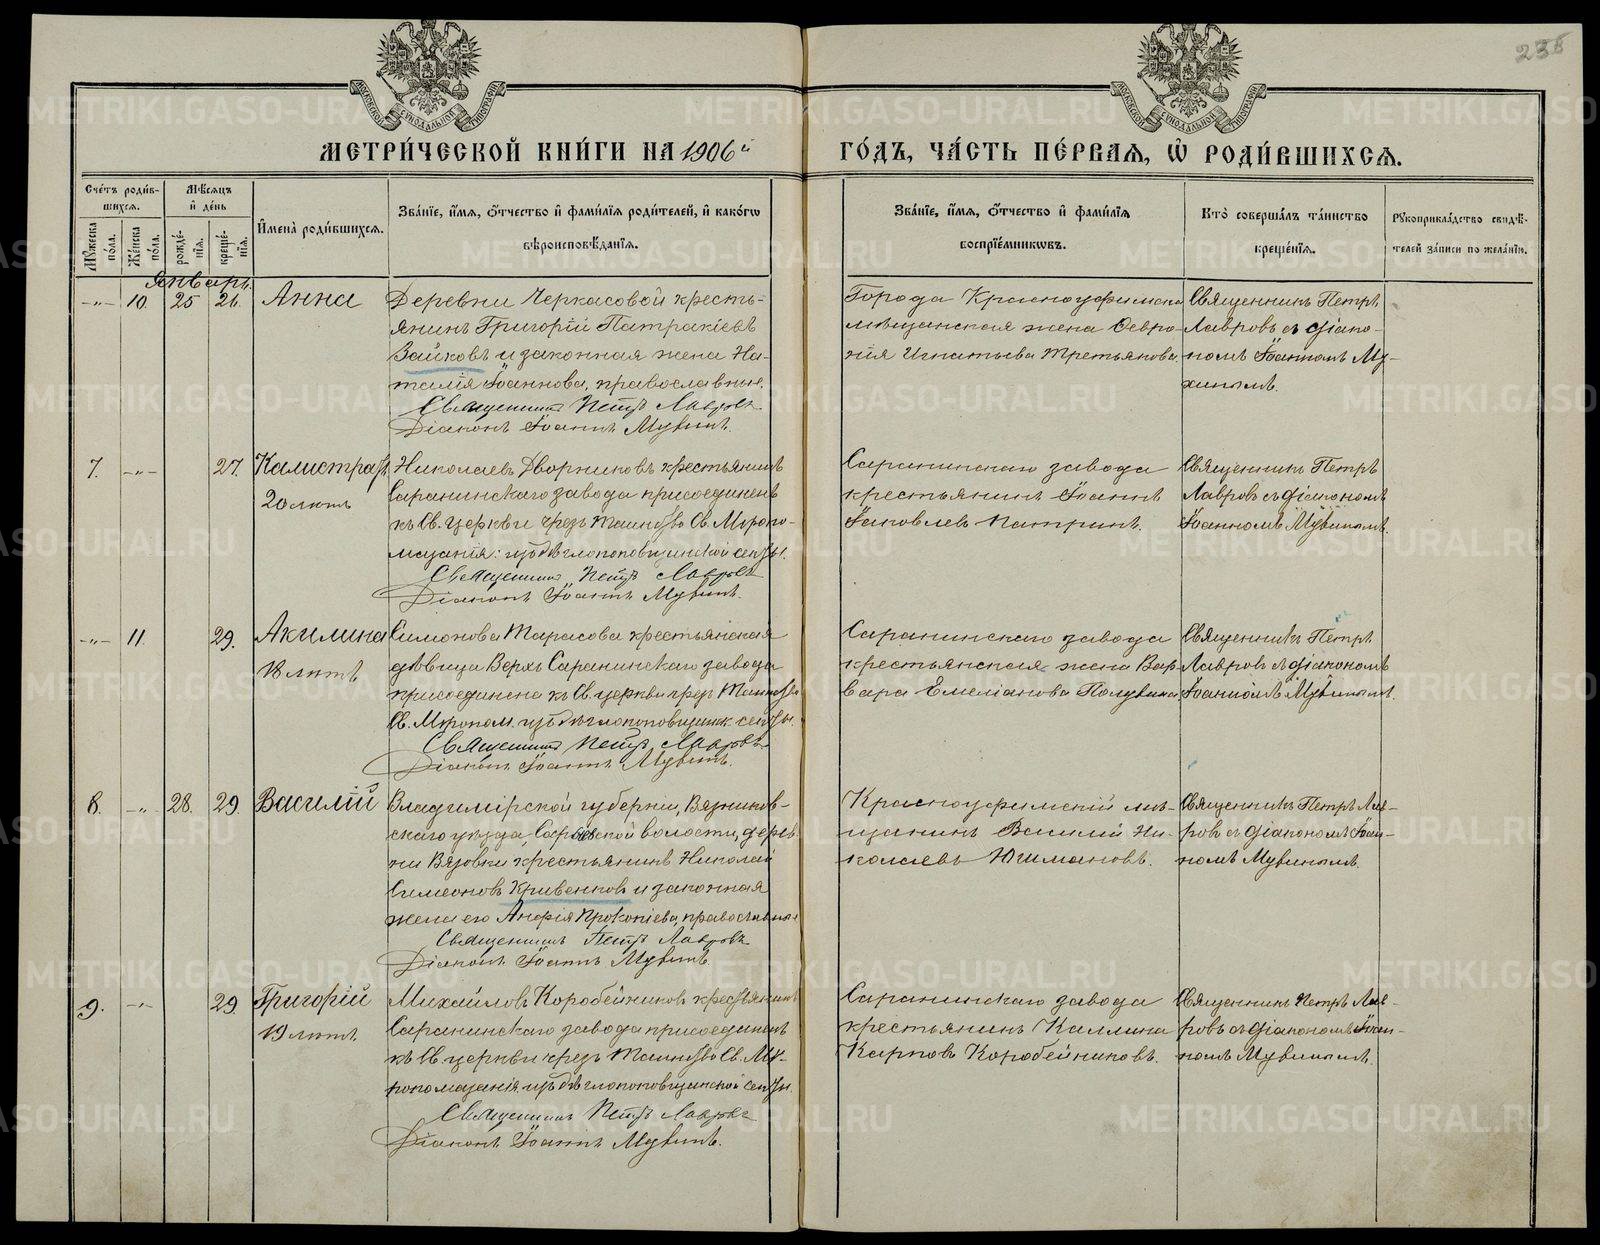 238
МОСКОВСКОЙ СѴНОДАЛЬНОЙ ТИПОГРАФІИ
МОСКОВСКОЙ СѴНОДАЛЬНОЙ ТИПОГРАФІИ
МЕТРИ́ЧЕСКОЙ КНИ́ГИ НА 1906й ГО́ДЪ, ЧА́СТЬ ПЕ́РВАЯ, Ѡ҆ РОДИ́ВШИХСЯ.
Сче́тъ роди́в-
шихся.
Мѣ́сяцъ
и҆ де́нь
Мꙋ́жеска по́ла.
Же́нска по́ла.
рожде́-нїя.
креще́-нїя.
И҆мена̀ роди́вшихся.
Зва́нїе, и҆́мя, о҆́тчество и҆ фами́лїя роди́телей, и҆ како́гѡ
вѣроисповѣ́данїя.
Зва́нїе, и҆́мя, о҆́тчество и҆ фами́лїя
воспрїе́мникѡвъ.
Кто̀ соверша́лъ та́инство
креще́нїя.
Рꙋкоприкла́дство свидѣ́-
телей за́писи по жела́нїю.
Январь.
-„- 10. 25 26. Анна
Деревни Черкасовой кресть-
янинъ Григорій Патракіевъ
Зайковъ и законная жена На-
талія Іоаннова, православные.
Священникъ Петръ Лавровъ
Діаконъ Іоаннъ Мухинъ.
Города Красноуфимска
мѣщанская жена Февро-
нія Игнатьева Третьякова
Священникъ Петръ
Лавровъ съ діако-
номъ Іоанномъ Му-
хинымъ.
7. -„- 27. Калистратъ
20 лѣтъ
Николаевъ Дворниковъ крестьянинъ
Саранинскаго завода присоединенъ
къ Св. Церкви чрезъ таинство Св. Мѵропо-
мазанія: изъ бѣглопоповщинской секты.
Священникъ Петръ Лавровъ
Діаконъ Іоаннъ Мухинъ.
Саранинскаго завода
крестьянинъ Іоаннъ
Іаковлевъ Патринъ.
Священникъ Петръ
Лавровъ съ діакономъ
Іоанномъ Мухинымъ.
-„- 11. 29. Акилина
18 лѣтъ
Симонова Тарасова крестьянская
дѣвица Верхъ Саранинскаго завода
присоединена къ Св. церкви чрез Таинство
Св. Мѵропом. изъ бѣглопоповщинск. секты.
Священникъ Петръ Лавровъ
Діаконъ Іоаннъ Мухинъ.
Саранинскаго завода
крестьянская жена Вар-
вара Емеліанова Полухина
Священникъ Петръ
Лавровъ съ діакономъ
Іоанномъ Мухинымъ.
8. -„- 28. 29. Василій
Владимірской губерніи, Вязников-
скаго уѣзда, волости, дерев-
ни Вязовки крестьянинъ Николай
Симеоновъ Кривенковъ и законная
жена его Анфія Прокопіева, православные
Священникъ Петръ Лавровъ
Діаконъ Іоаннъ Мухинъ.
Красноуфимскій мѣ-
щанинъ Василій Ни-
колаевъ Юшмановъ.
Священникъ Петръ Лав-
ровъ съ діакономъ Іоан-
номъ Мухинымъ.
9. -„- 29. Григорій
19 лѣтъ
Михайловъ Коробейниковъ крестьянинъ
Саранинскаго завода присоединенъ
къ Св. церкви чрезъ таинство Св. Мѵ-
ропомазанія изъ бѣглопоповщинской секты.
Священникъ Петръ Лавровъ
Діаконъ Іоаннъ Мухинъ.
Саранинскаго завода
крестьянинъ Каллина
Карповъ Коробейниковъ.
Священникъ Петръ Лав-
ровъ съ діакономъ Іоан-
номъ Мухинымъ.
METRIKI.GASO-URAL.RU